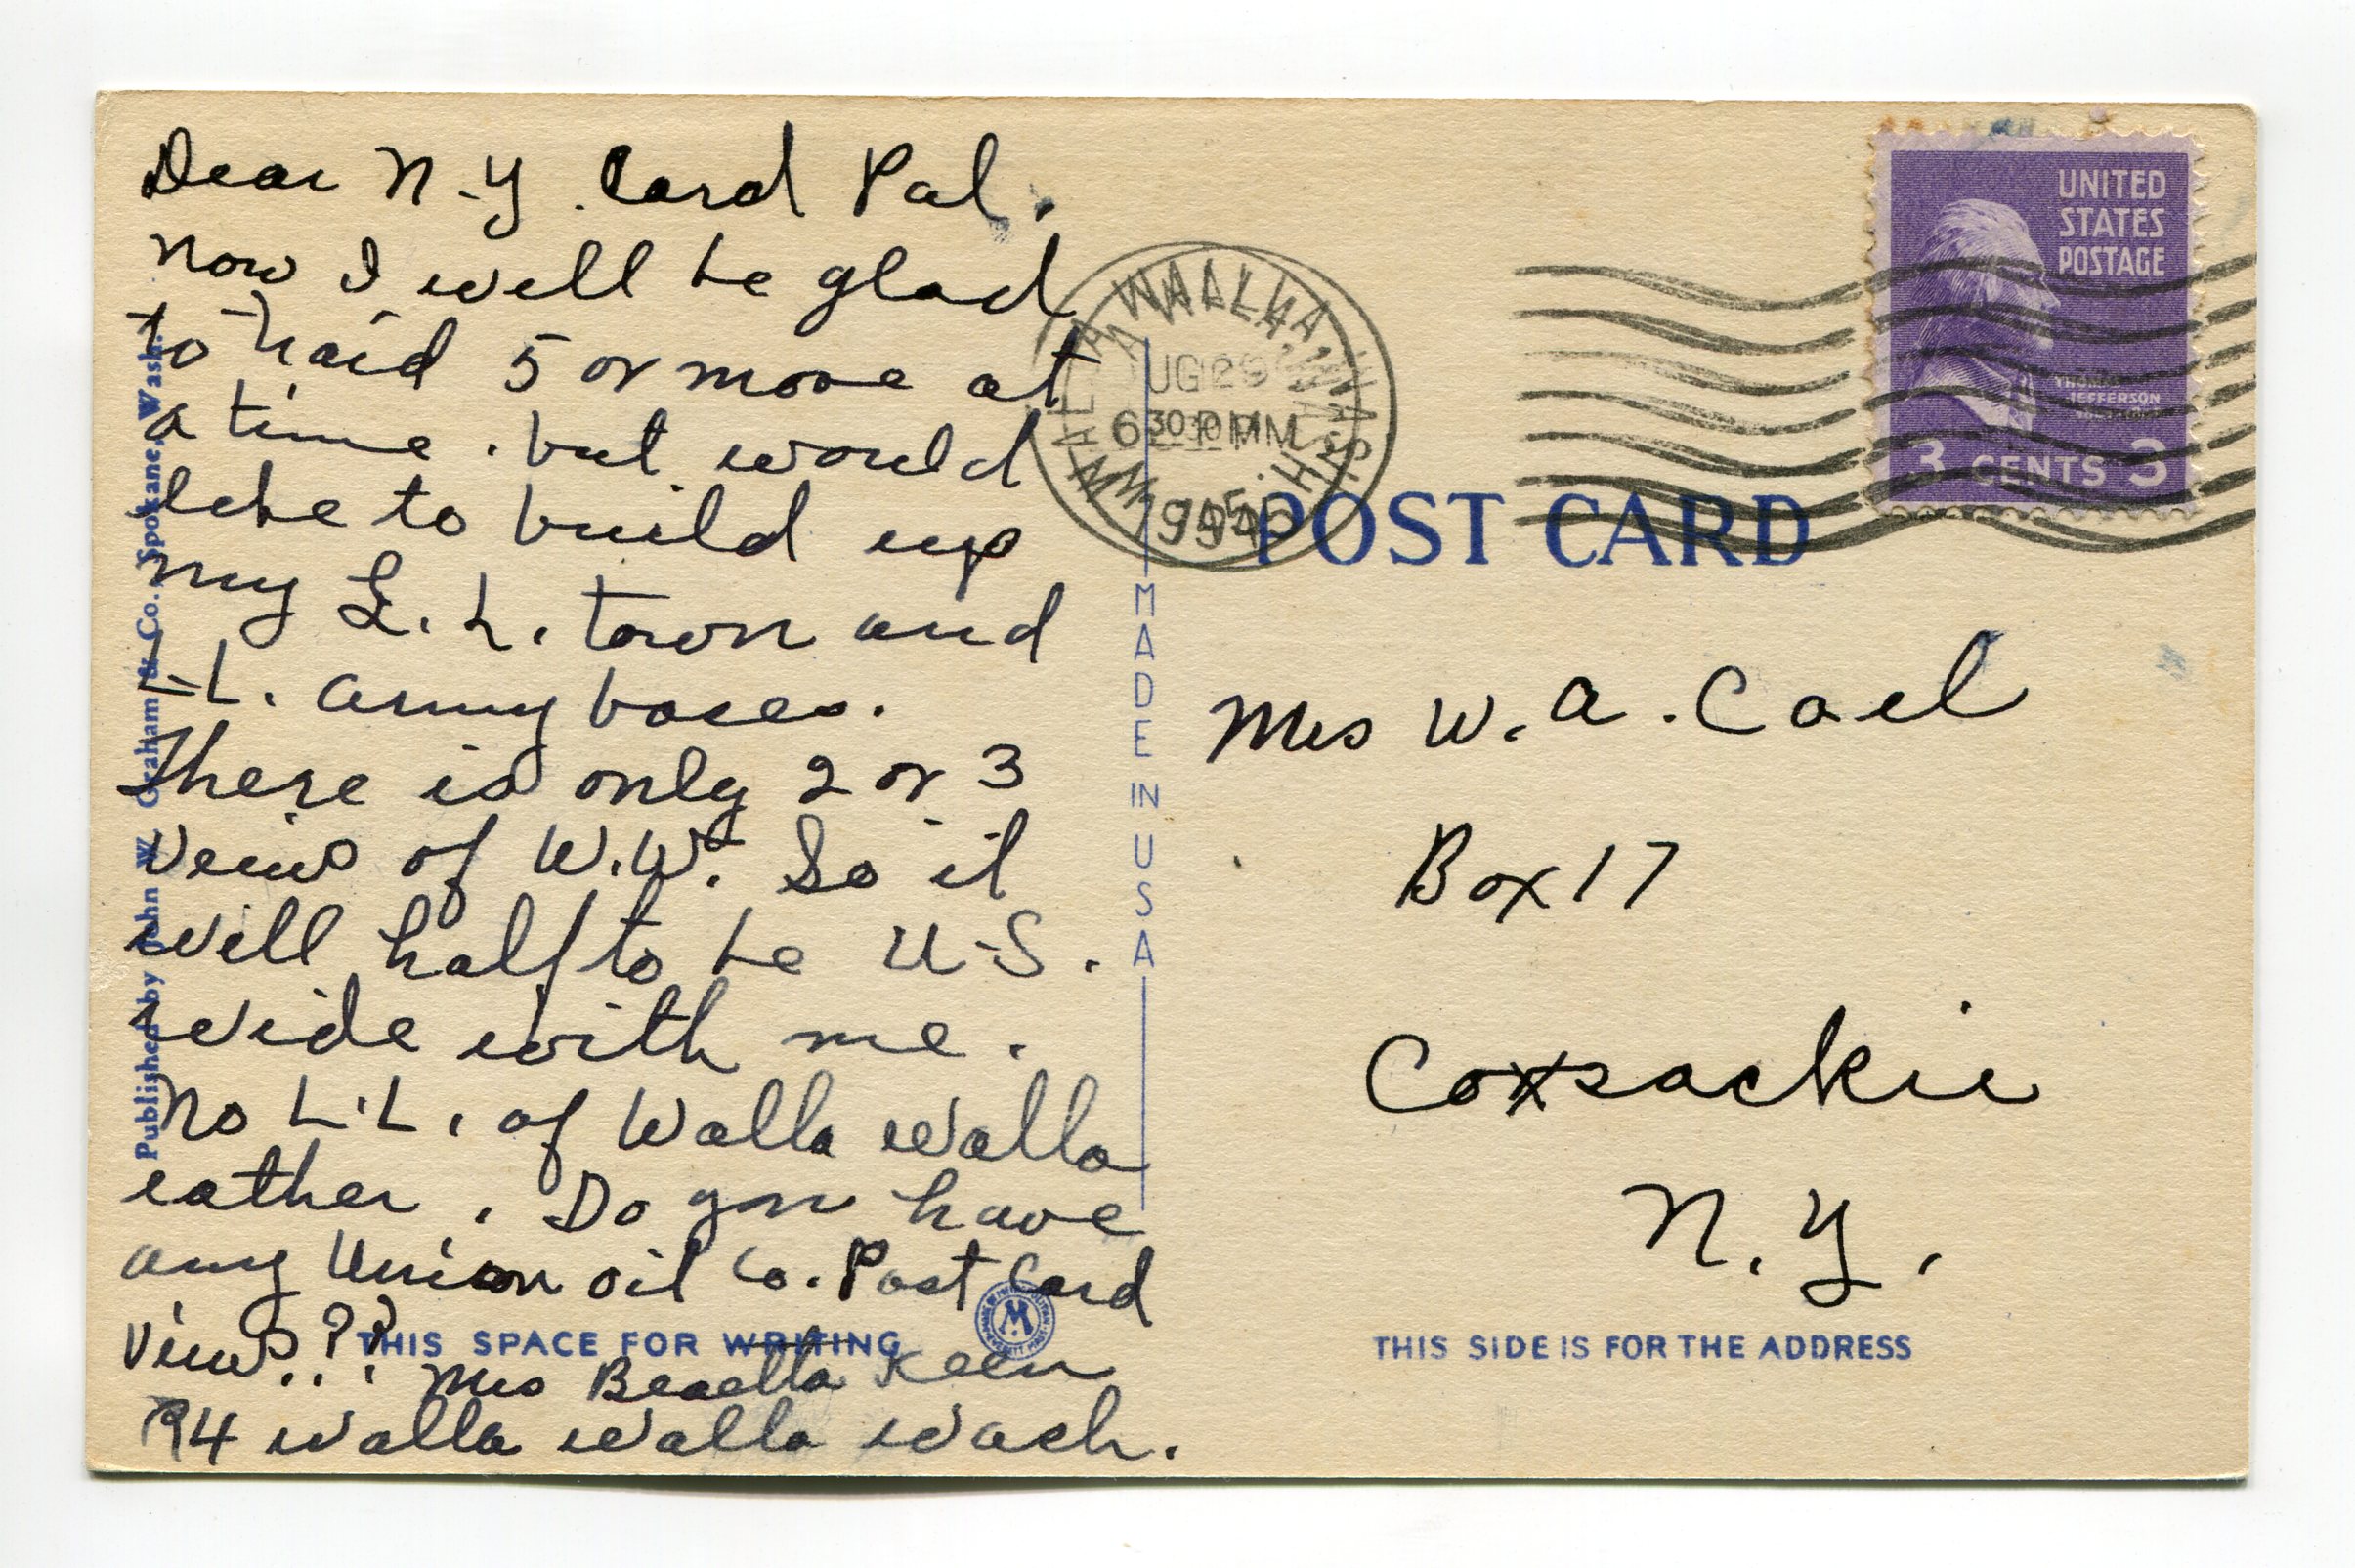 Dear N.Y. Card Pal.
Now I will be glad
to traid 5 or more at
a time. but would
like to build up
my L.L. town and
L.L. army bases.
There is only 2 or 3
veiws of W.W. So it
will half to be U.S.
wide with me.
No L.L. of Walla Walla
eather. Do you have
any Union Oil Co. Post Card
views??
Mrs Keen
R4 Walla Walla Wash.
Published by John W. Graham & Co., Spokane, Wash.
THIS SPACE FOR WRITING
MADE IN USA
WALLA WALLA, WASH.
AUG 29
630 PM
1945
UNITED
STATES
POSTAGE
THOMAS
JEFFERSON
3 CENTS 3
POST CARD
Mrs W. A. Cael
Box 17
Coxsackie
N.Y.
THIS SIDE IS FOR THE ADDRESS